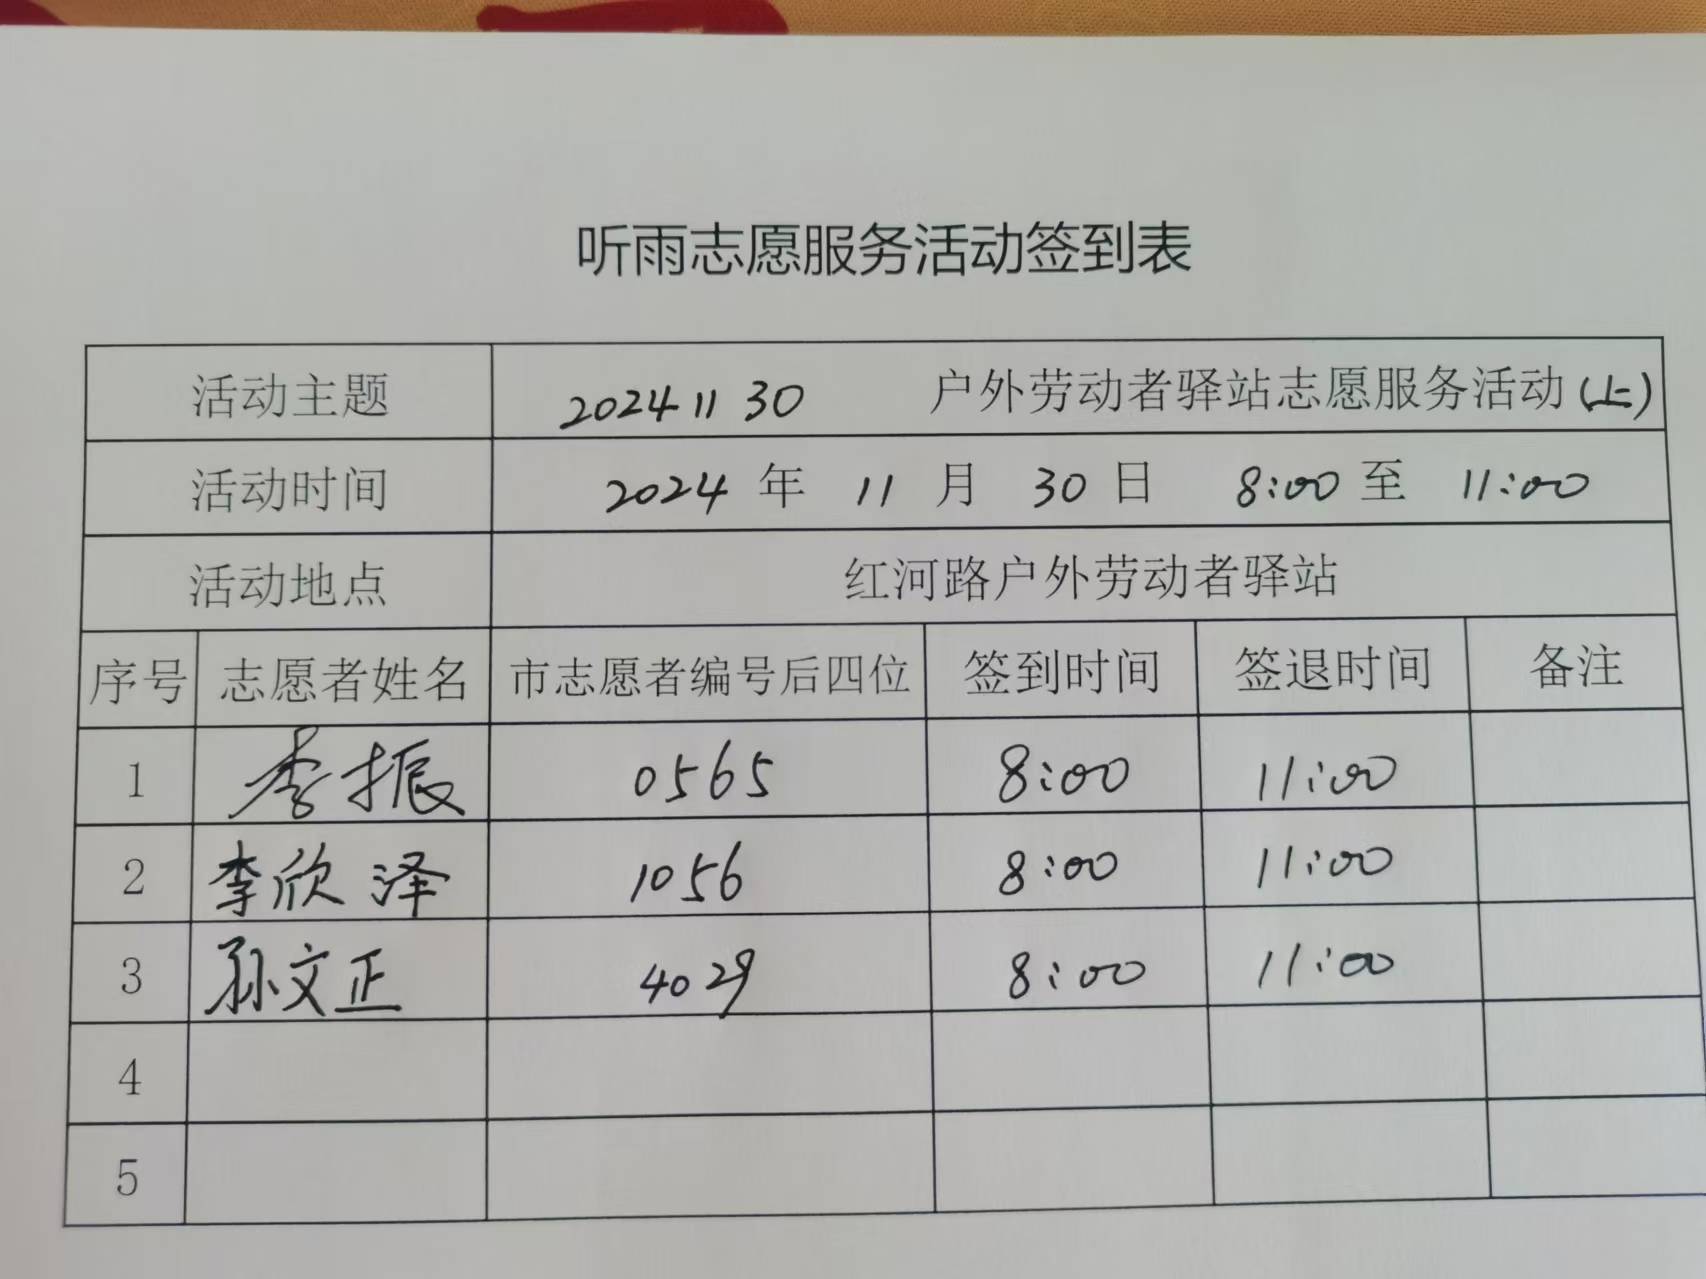 听雨志愿服务活动签到表
活动主题 20241130 户外劳动者驿站志愿服务活动(上)
活动时间 2024 年 11 月 30 日 8:00 至 11:00
活动地点 红河路户外劳动者驿站
序号 志愿者姓名 市志愿者编号后四位 签到时间 签退时间 备注
1 季振 0565 8:00 11:00
2 李欣泽 1056 8:00 11:00
3 孙文正 4029 8:00 11:00
4
5